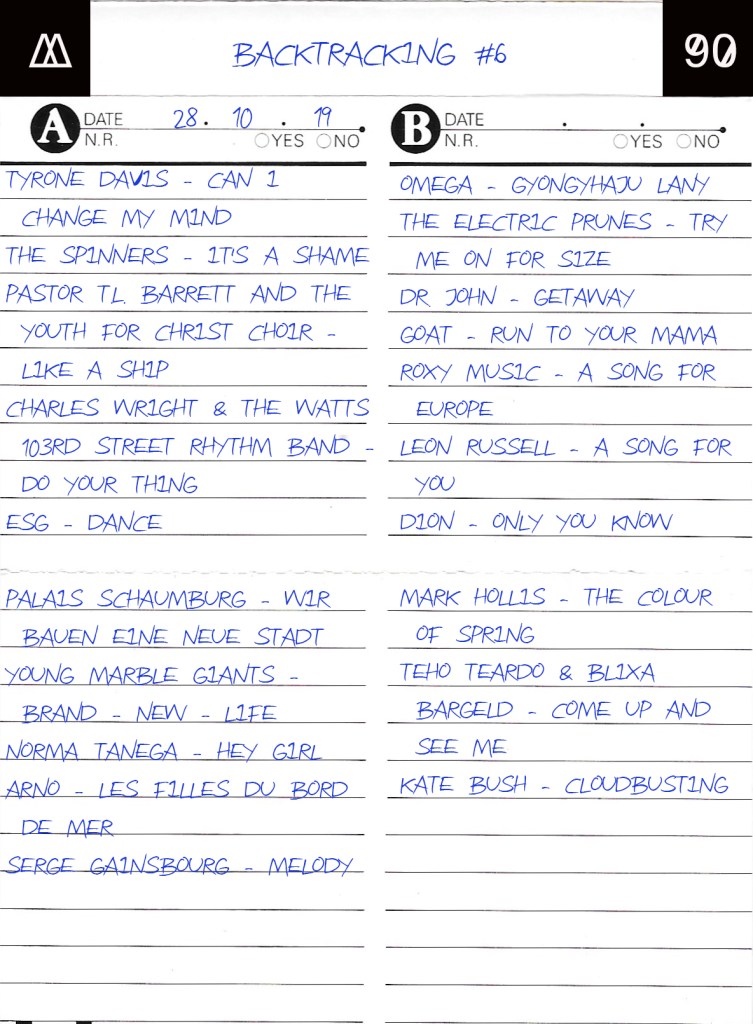 BACKTRACKING #6
90
A DATE 28. 10. 19
N.R. YES NO
TYRONE DAVIS - CAN I
CHANGE MY MIND
THE SPINNERS - IT'S A SHAME
PASTOR T.L. BARRETT AND THE
YOUTH FOR CHRIST CHOIR -
LIKE A SHIP
CHARLES WRIGHT & THE WATTS
103RD STREET RHYTHM BAND -
DO YOUR THING
ESG - DANCE
PALAIS SCHAUMBURG - WIR
BAUEN EINE NEUE STADT
YOUNG MARBLE GIANTS -
BRAND - NEW - LIFE
NORMA TANEGA - HEY GIRL
ARNO - LES FILLES DU BORD
DE MER
SERGE GAINSBOURG - MELODY
B DATE . .
N.R. YES NO
OMEGA - GYONGYHAJU LANY
THE ELECTRIC PRUNES - TRY
ME ON FOR SIZE
DR JOHN - GETAWAY
GOAT - RUN TO YOUR MAMA
ROXY MUSIC - A SONG FOR
EUROPE
LEON RUSSELL - A SONG FOR
YOU
DION - ONLY YOU KNOW
MARK HOLLIS - THE COLOUR
OF SPRING
TEHO TEARDO & BLIXA
BARGELD - COME UP AND
SEE ME
KATE BUSH - CLOUDBUSTING